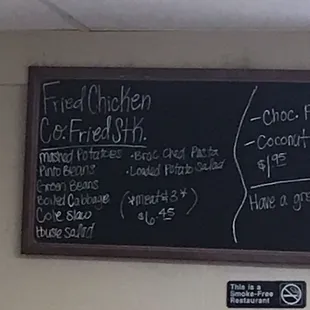 Fried Chicken
Co. Fried Stk.
mashed Potatoes
Pinto Beans
Green Beans
Boiled Cabbage
Cole slaw
House salad
• Broc Ched Pasta
• Loaded Potato Salad
(*meat + 3*)
$6.45
- Choc.
- Coconut
$1.95
Have a
This is a
Smoke-Free
Restaurant